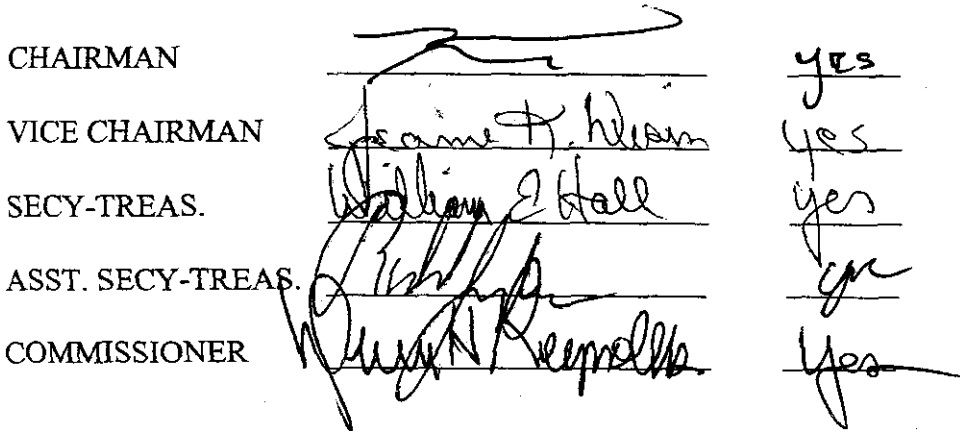 CHAIRMAN yes
VICE CHAIRMAN K. yes
SECY-TREAS. William E Hall yes
ASST. SECY-TREAS.
COMMISSIONER Reynolds. Yes